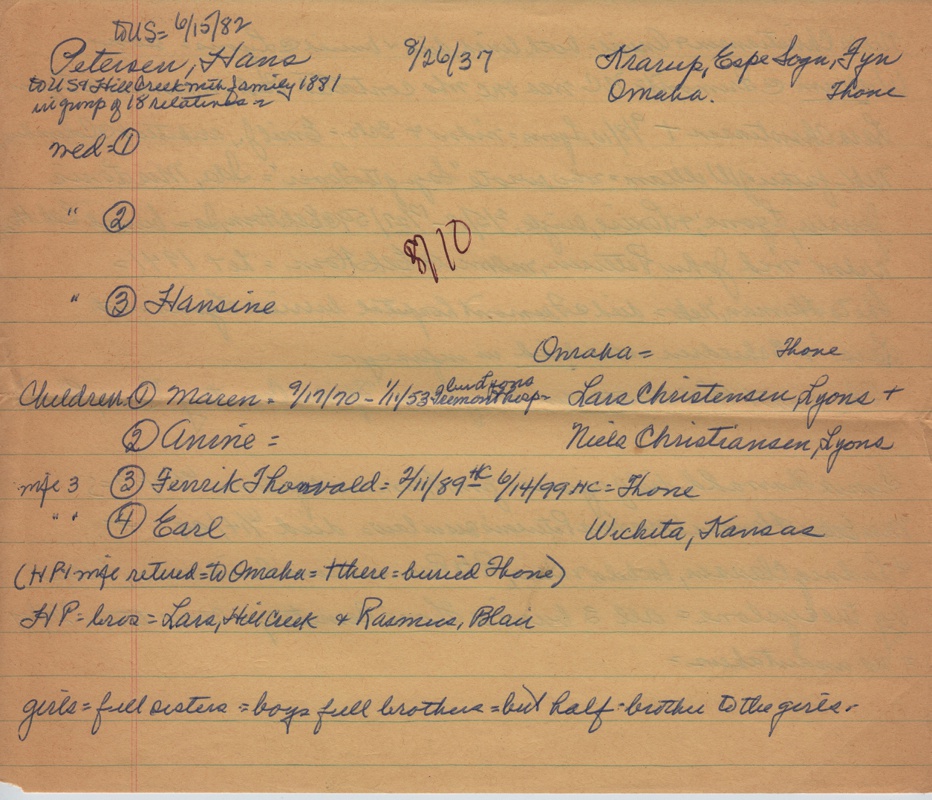 to US = 6/15/82
Petersen, Hans 8/26/37 Krarup, Espe Sogn, Fyn
to US + Hill Creek with family 1881 Omaha. Thone
in group of 18 relatives =
wed = ①
" ②
8/10
" ③ Hansine
Omaha = Thone
bur Lyons
Children ① Maren = 9/17/70 - 1/11/53 Fremont hosp = Lars Christensen, Lyons +
② Anine = Niels Christiansen, Lyons
wife 3 ③ Fenrik Thorwald = 2/11/89 HC 6/14/99 HC = Thone
" " ④ Earl Wichita, Kansas
(HP + wife retired = to Omaha = + there = buried Thone)
HP = bros = Lars, Hill Creek & Rasmus, Blair
girls = full sisters = boys full brothers = but half-brother to the girls -